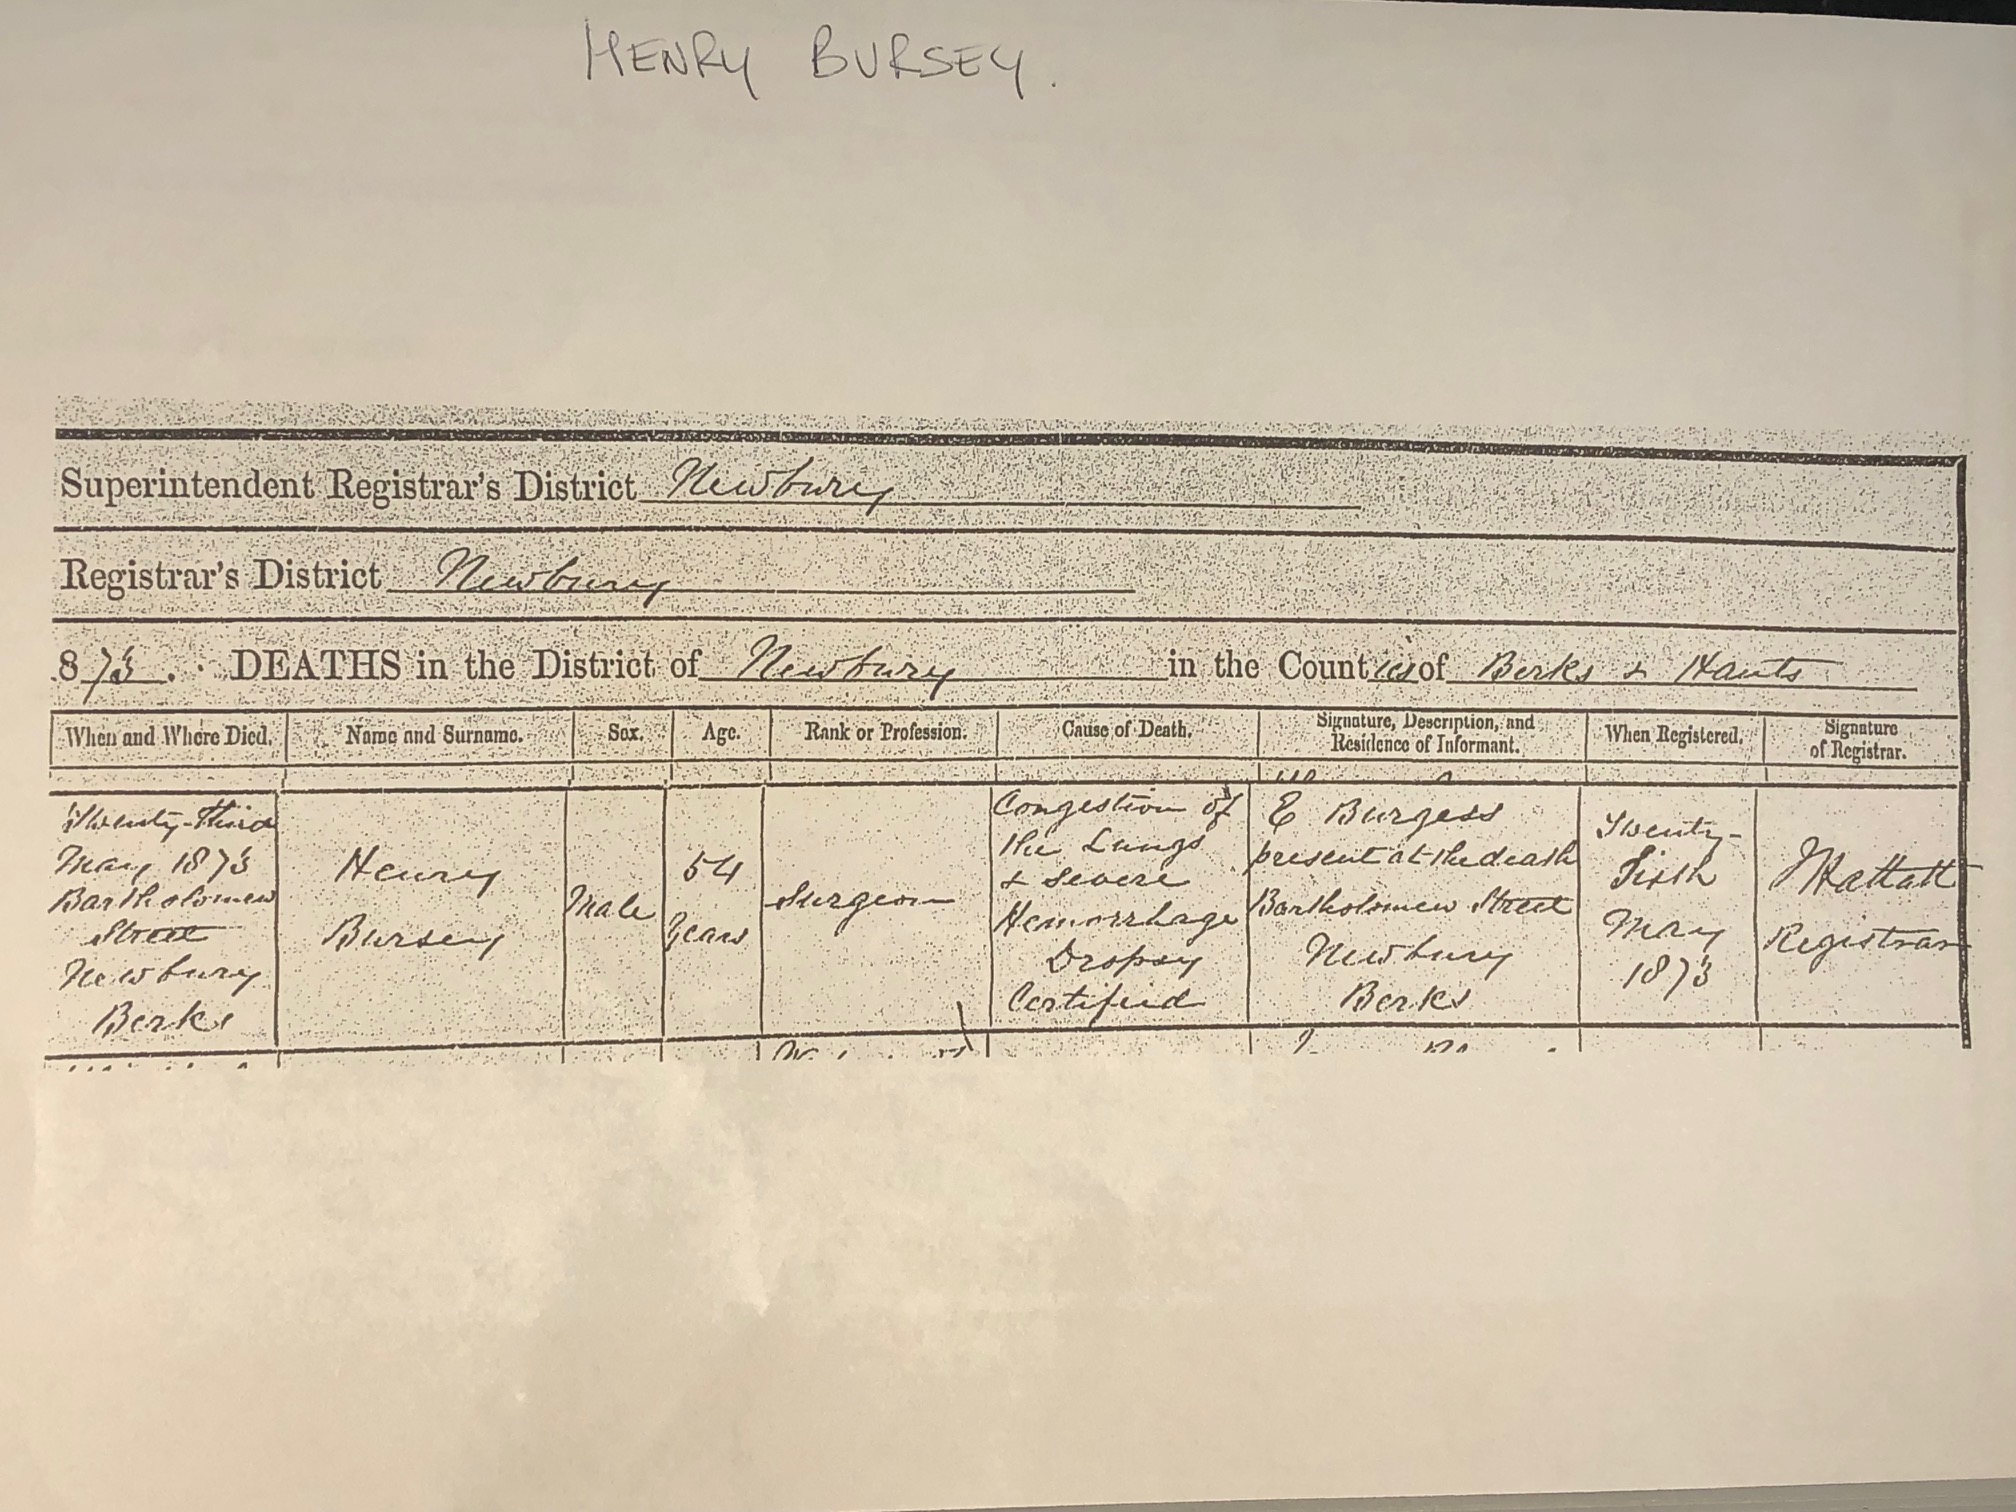 HENRY BURSEY.
Superintendent Registrar's District Newbury
Registrar's District Newbury
873. DEATHS in the District of Newbury in the Counties of Berks & Hants
When and Where Died. Name and Surname. Sex. Age. Rank or Profession. Cause of Death. Signature, Description, and Residence of Informant. When Registered. Signature of Registrar.
Twenty-third
May 1873
Bartholomew
Street
Newbury
Berks
Henry
Bursey
Male
54
Years
Surgeon
Congestion of
the Lungs
& severe
Hemorrhage
Dropsy
Certified
E Burgess
present at the death
Bartholomew Street
Newbury
Berks
Twenty-
Sixth
May
1873
Registrar